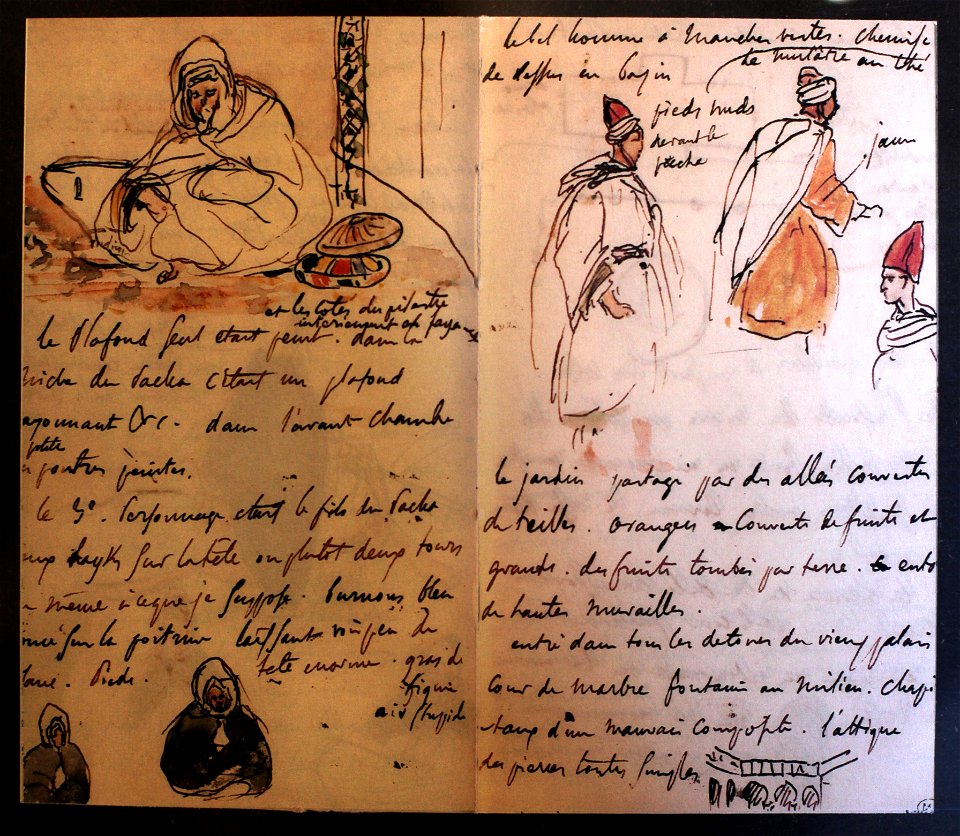 et les cotés du pilastre
interieurement en faya-
le Plafond seul etait peint. dans la
niche du Pacha c'était un plafond
ayonnant &c. dans l'avant chambre
petite
poutres peintes.
le 3e. Personnage etait le fils du Pacha
hayks sur la tête ou plutot deux tours
même à ce que je suppose. burnous bleu
sur la poitrine laissant voir peu de
tête enorme. gras de
figure
air stupide
le bel homme à Manches vertes. Chemise
le mulâtre au thé
de dessus en basin
pieds nuds
devant le
pacha
jaune
le jardin partagé par des allées couvertes
de treilles. orangers Couverts de fruits et
grands. des fruits tombés par terre. entouré
de hautes murailles.
entré dans tous les detours du vieux palais
Cour de marbre fontaine au milieu. Chapi
taux d'un mauvais composite. l'attique
des pierres toutes simples